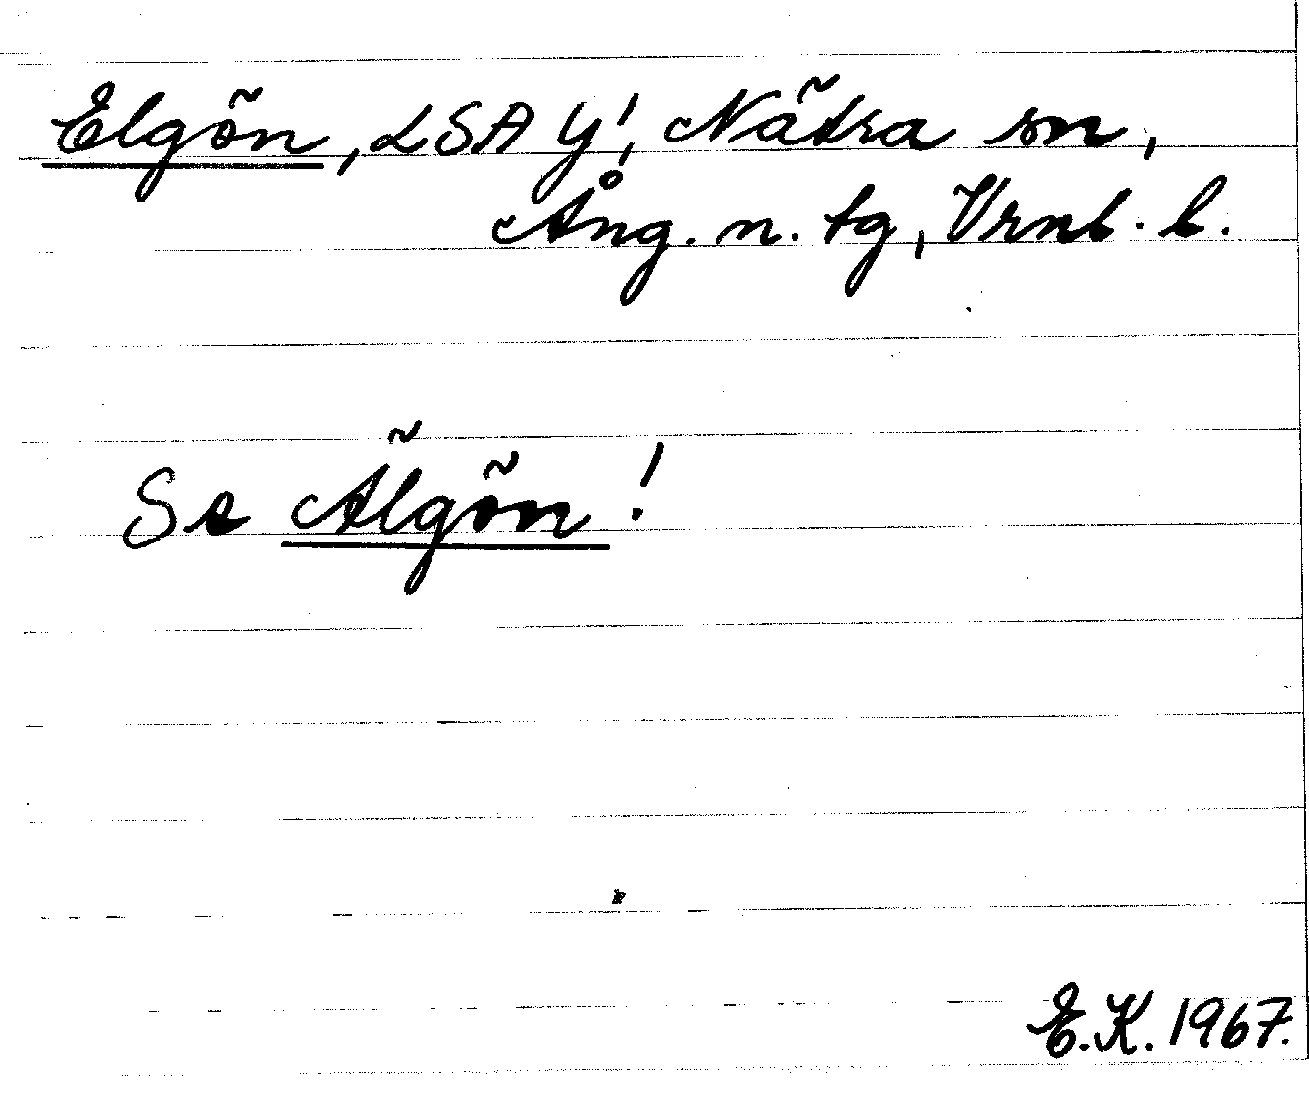 Elgön, LSA Y!, Nätra sn,
Ång. n. tg, Vrnl. b.
Se Älgön!
E.K. 1967.